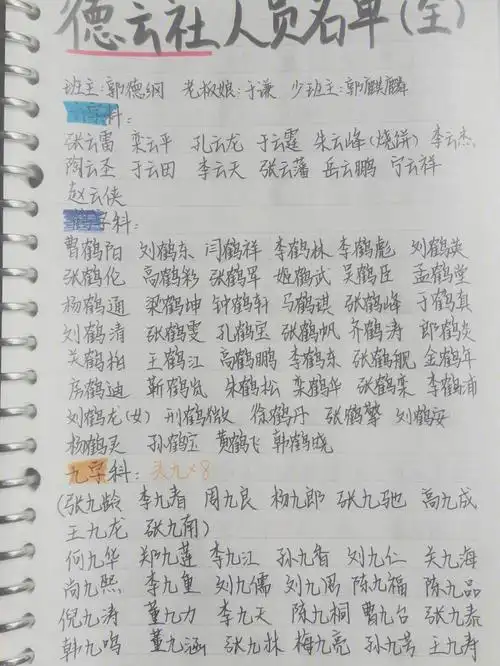 德云社人员名单(全)
班主:郭德纲 老板娘:于谦 少班主:郭麒麟
云字科:
张云雷 栾云平 孔云龙 于云霆 朱云峰(烧饼) 李云杰
陶云圣 于云田 李云天 张云藩 岳云鹏 宁云祥
赵云侠
鹤字科:
曹鹤阳 刘鹤东 闫鹤祥 李鹤林 李鹤彪 刘鹤英
张鹤伦 高鹤彩 张鹤军 姬鹤武 吴鹤臣 孟鹤堂
杨鹤通 梁鹤坤 钟鹤轩 马鹤琪 张鹤峰 于鹤真
刘鹤清 张鹤雯 孔鹤宝 张鹤帆 齐鹤涛 郎鹤炎
关鹤柏 王鹤江 高鹤鹏 李鹤东 张鹤舰 金鹤年
房鹤迪 靳鹤岚 朱鹤松 栾鹤华 张鹤栾 李鹤浦
刘鹤龙(女) 刑鹤微 徐鹤丹 张鹤擎 刘鹤安
杨鹤灵 孙鹤宝 黄鹤飞 韩鹤晓
九字科: 头九×8
(张九龄 李九春 周九良 杨九郎 张九驰 高九成
王九龙 张九南)
何九华 郑九莲 李九江 孙九香 刘九仁 关九海
尚九熙 李九重 刘九儒 刘九泗 陈九福 陈九品
倪九涛 董九力 李九天 陈九桐 曹九台 张九泰
韩九鸣 董九涵 张九林 梅九亮 孙九芳 王九寿